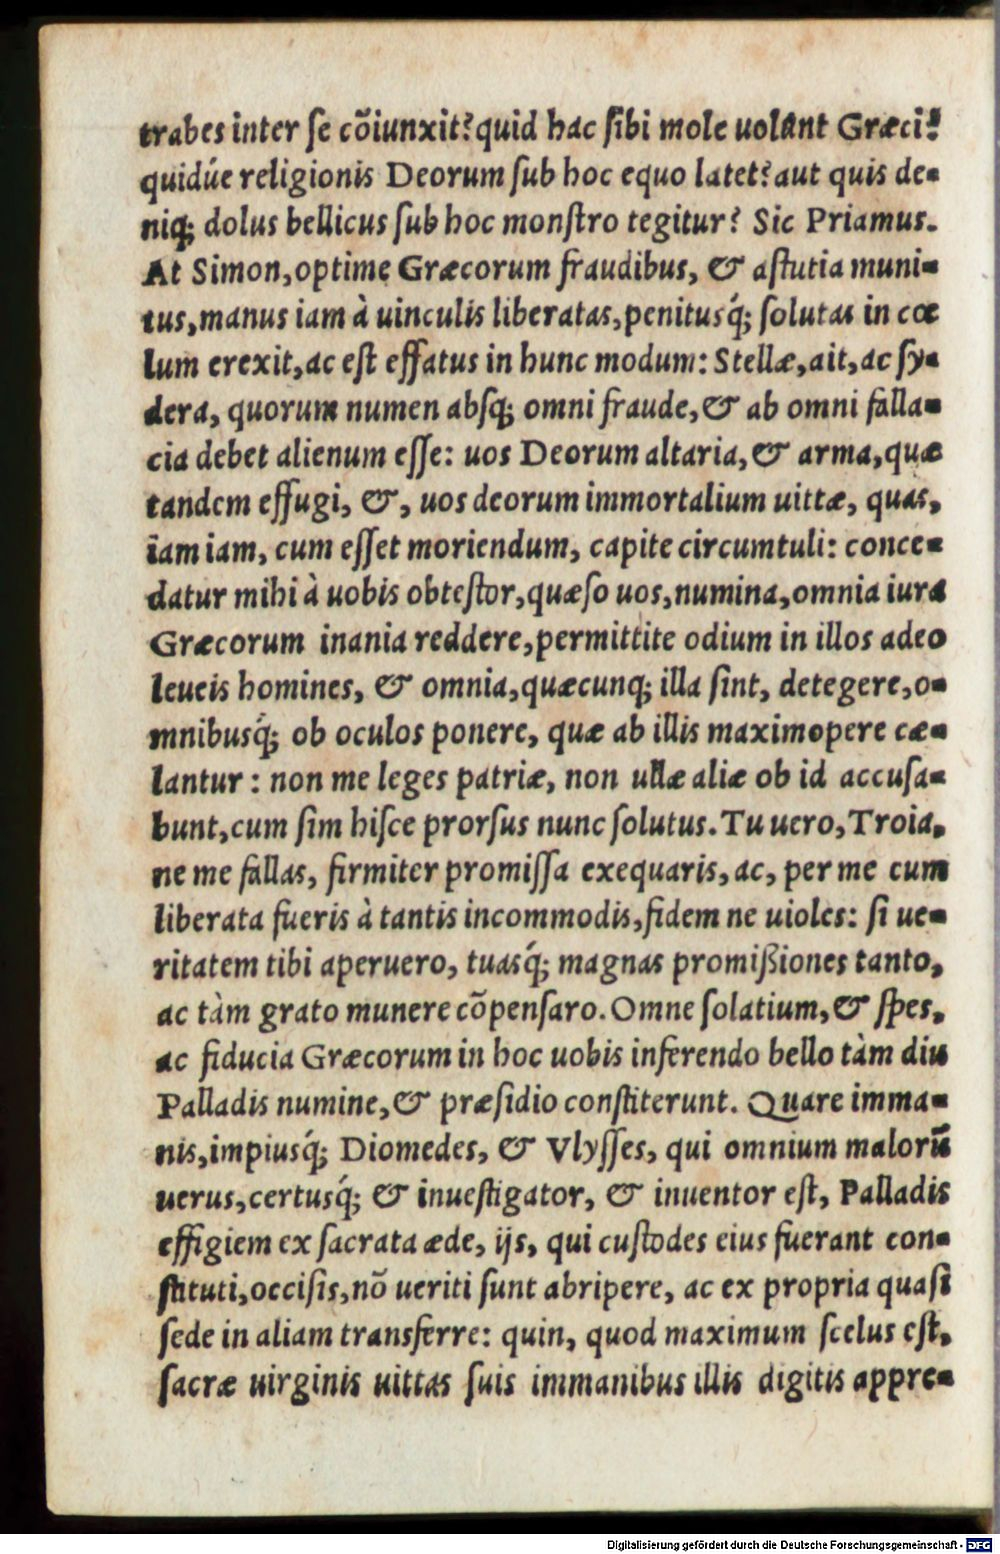 trabes inter ſe cõiunxit? quid hac ſibi mole uolunt Græci?
quidúe religionis Deorum ſub hoc equo latet? aut quis de-
niq; dolus bellicus ſub hoc monſtro tegitur? Sic Priamus.
At Simon, optime Græcorum fraudibus, & aſtutia muni-
tus, manus iam à uinculis liberatas, penitusq́; ſolutas in cœ
lum erexit, ac eſt effatus in hunc modum: Stellæ, ait, ac ſy-
dera, quorum numen abſq; omni fraude, & ab omni falla-
cia debet alienum eſſe: uos Deorum altaria, & arma, quæ
tandem effugi, &, uos deorum immortalium uittæ, quas,
iam iam, cum eſſet moriendum, capite circumtuli: conce-
datur mihi à uobis obteſtor, quæſo uos, numina, omnia iura
Græcorum inania reddere, permittite odium in illos adeo
leueis homines, & omnia, quæcunq; illa ſint, detegere, o-
mnibusq́; ob oculos ponere, quæ ab illis maximopere cæ-
lantur: non me leges patriæ, non ullæ aliæ ob id accuſa-
bunt, cum ſim hiſce prorſus nunc ſolutus. Tu uero, Troia,
ne me fallas, firmiter promiſſa exequaris, ac, per me cum
liberata fueris à tantis incommodis, fidem ne uioles: ſi ue-
ritatem tibi aperuero, tuasq́; magnas promißiones tanto,
ac tàm grato munere cõpenſaro. Omne ſolatium, & ſpes,
ac fiducia Græcorum in hoc uobis inferendo bello tàm diu
Palladis numine, & præſidio conſtiterunt. Quare imma-
nis, impiusq́; Diomedes, & Vlyſſes, qui omnium malorũ
uerus, certusq́; & inueſtigator, & inuentor eſt, Palladis
effigiem ex ſacrata æde, ijs, qui cuſtodes eius fuerant con-
ſtituti, occiſis, nõ ueriti ſunt abripere, ac ex propria quaſi
ſede in aliam transferre: quin, quod maximum ſcelus eſt,
ſacræ uirginis uittas ſuis immanibus illis digitis appre-
Digitalisierung gefördert durch die Deutsche Forschungsgemeinschaft - DFG